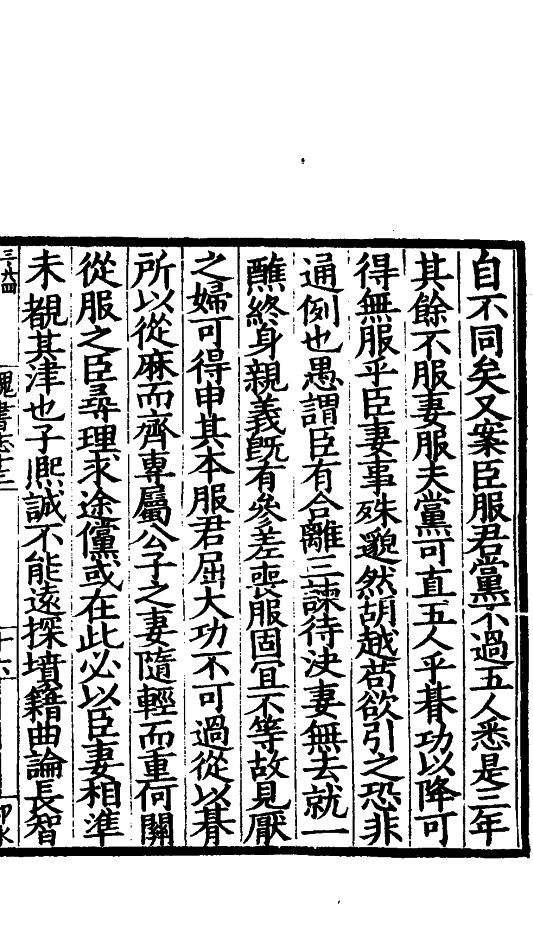 自不同矣又案臣服君黨不過五人悉是三年
其餘不服妻服夫黨可直五人乎朞功以降可
得無服乎臣妻事殊邈然胡越苟欲引之恐非
通例也愚謂臣有合離三諫待決妻無去就一
醮終身親義既有參差喪服固宜不等故見厭
之婦可得申其本服君屈大功不可過從以朞
所以從麻而齊專屬公子之妻隨輕而重何關
從服之臣尋理求途儻或在此必以臣妻相準
未覩其津也子熙誠不能遠探墳籍曲論長智
三·八四
魏書志十三
十六